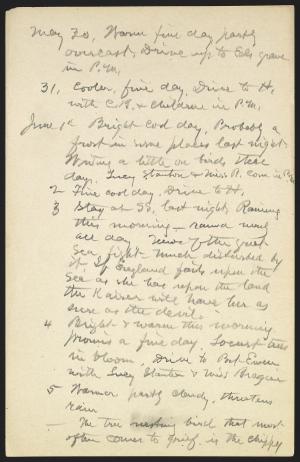 May 30, Warm fine day, partly
overcast, Drive up to Eds grave
in P.M.
31, Cooler, fine day, Drive to H,
with C.B. & children in P.M.
June 1st Bright cool day, Probably a
frost in some places last night.
Writing a little on birds these
day. Lucy Stanton & Miss B. come in P.M.
2 Fine cool day, Drive to H,
3 Stay at 50, last night, Raining
this morning — rained nearly
all day. News of the great
Sea fight — much disturbed by
it. If England fails upon the
Sea as she has upon the land
the Kaiser will have her as
sure as the devil.
4 Bright & warm this morning
promis a fine day. Locust trees
in bloom. Drive to
with Lucy Stanton & Miss
5 Warmer partly cloudy, threatens
rain.
— The tree nesting bird that most
often comes to grief, is the chippy